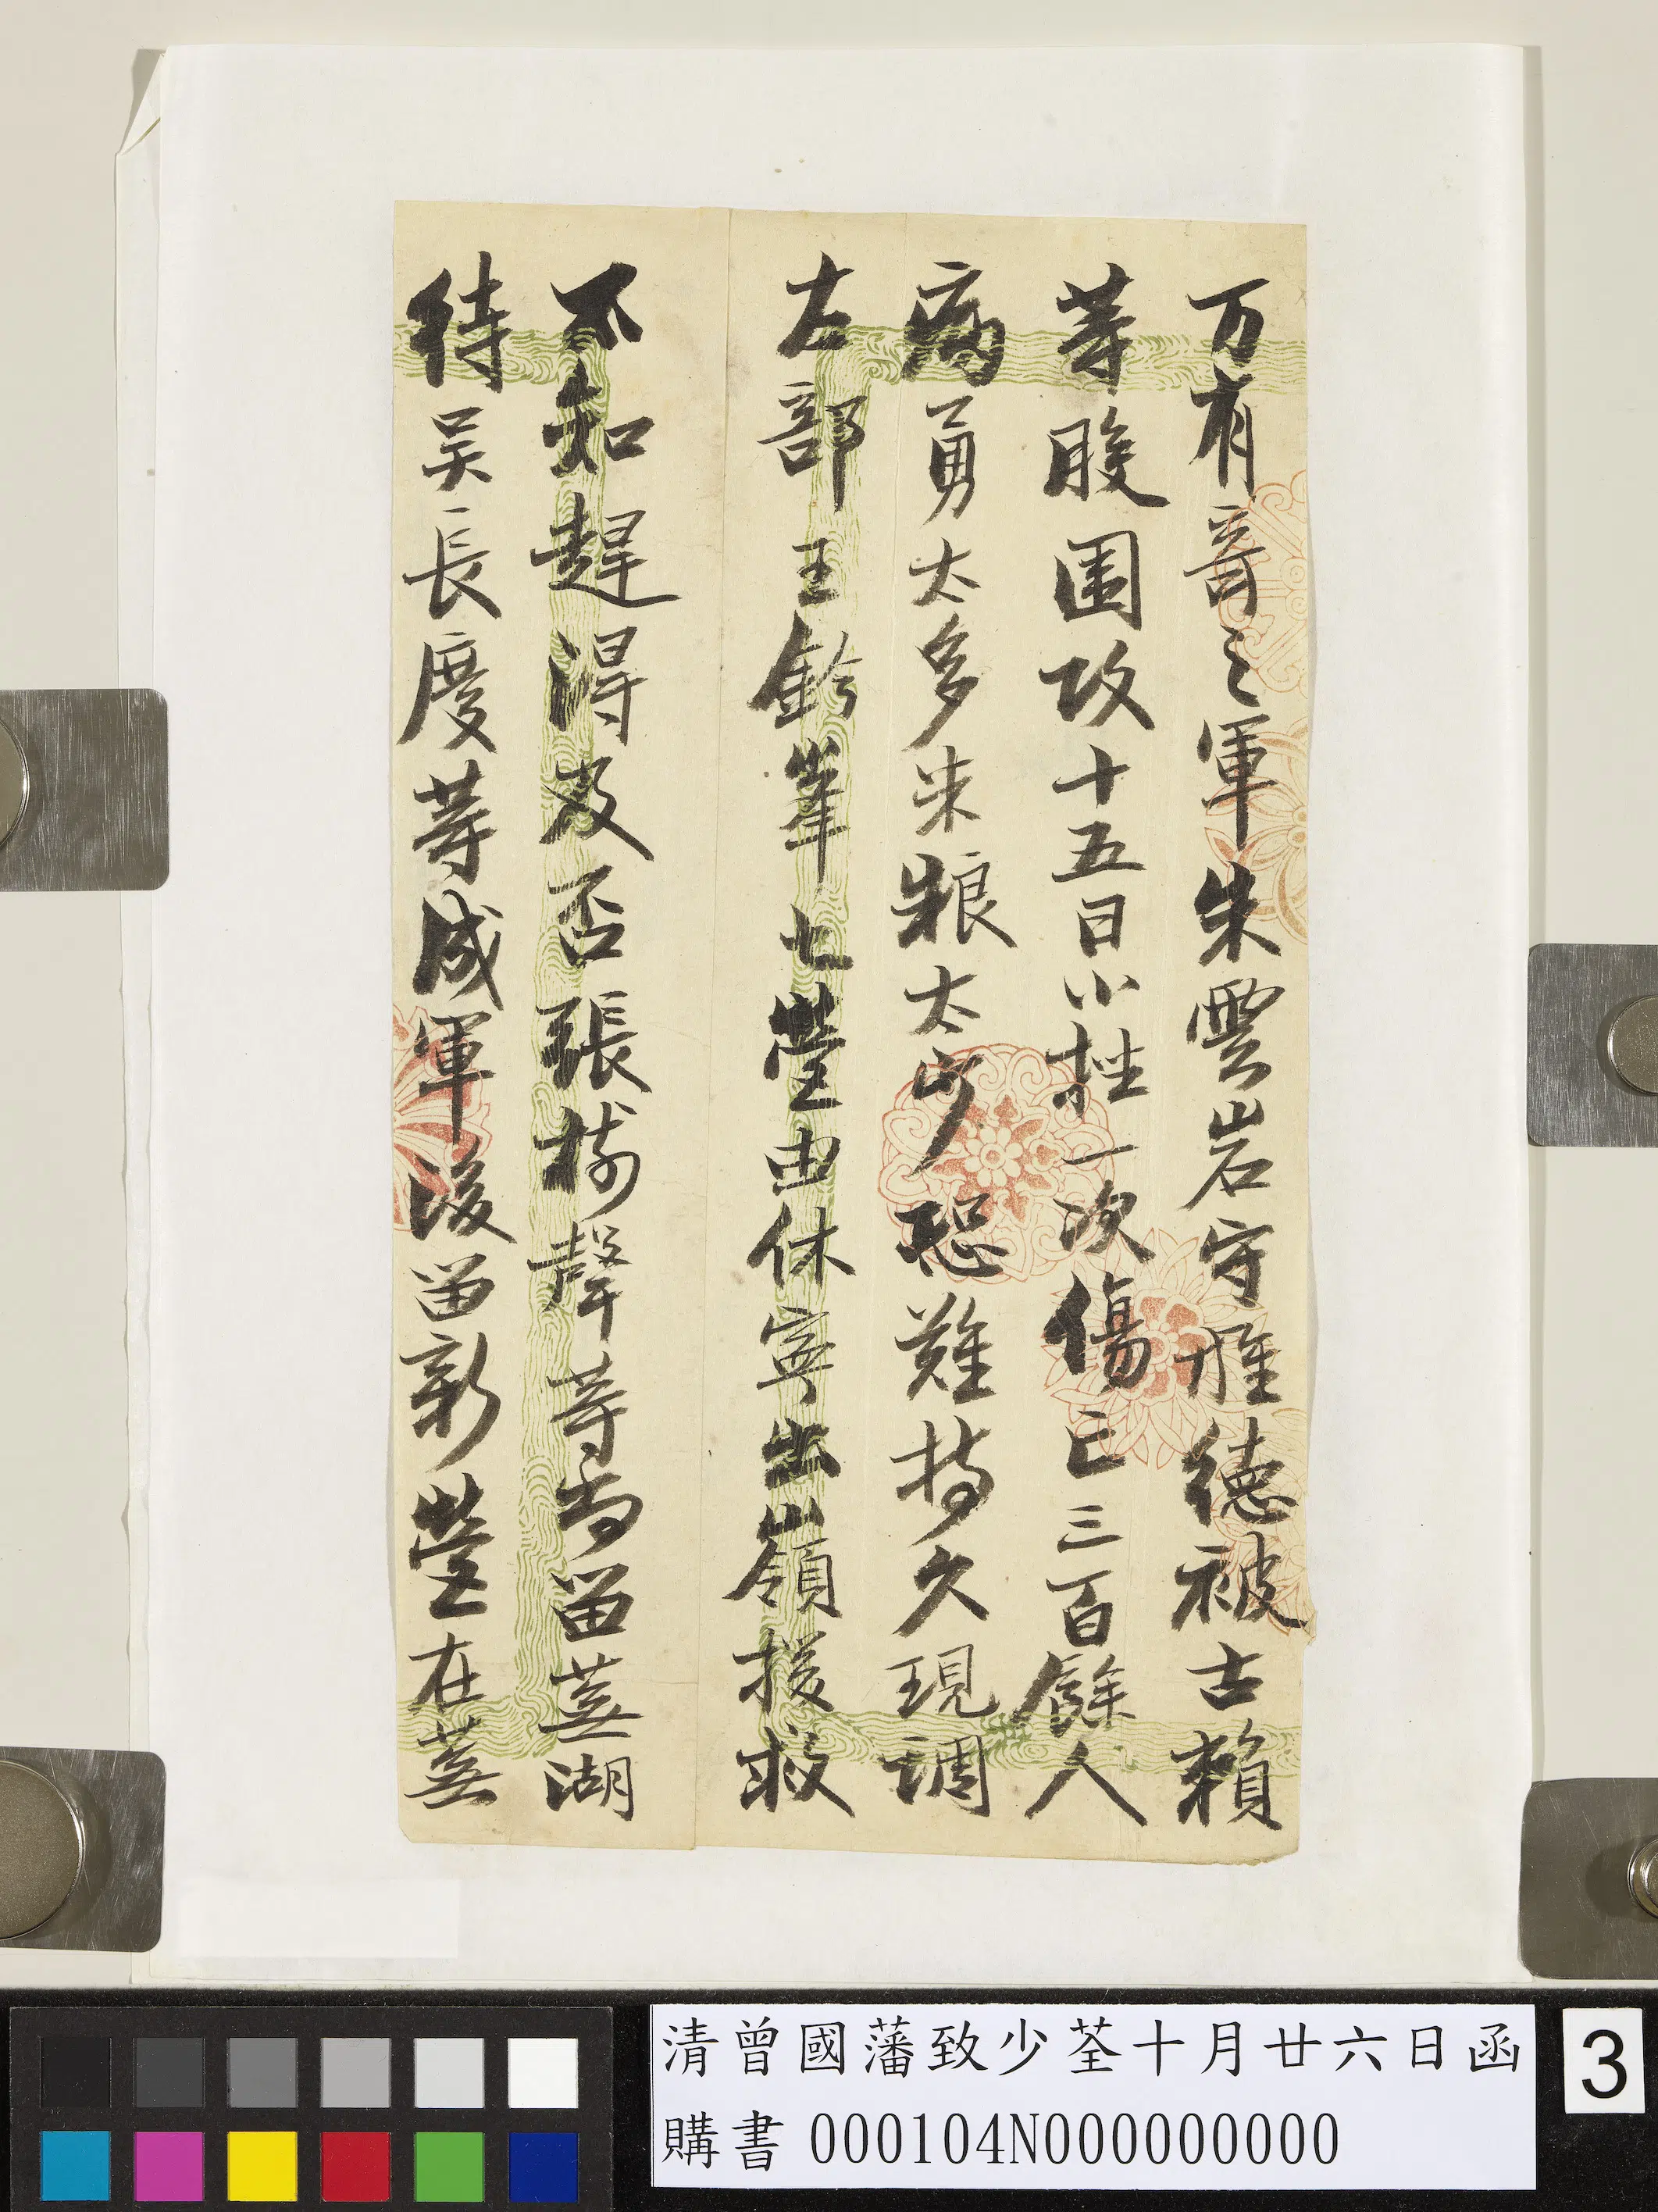 万有音之軍朱雲岩守旌德被古賴
等股围攻十五日小挫一次傷亡三百餘人
病勇太多米粮太少恐難持久現調
左部王鈐峯七營由休寧出嶺援救
不知趕得及否張樹聲等尚留蕪湖
待吴長慶等成軍後留新營在蕪
清曾國藩致少荃十月廿六日函
購書 000104N000000000
3